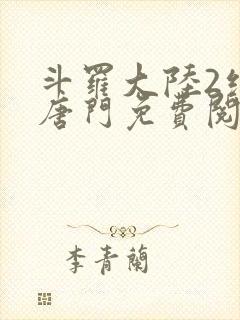 斗羅大陸2
唐門免費閱
李青蘭